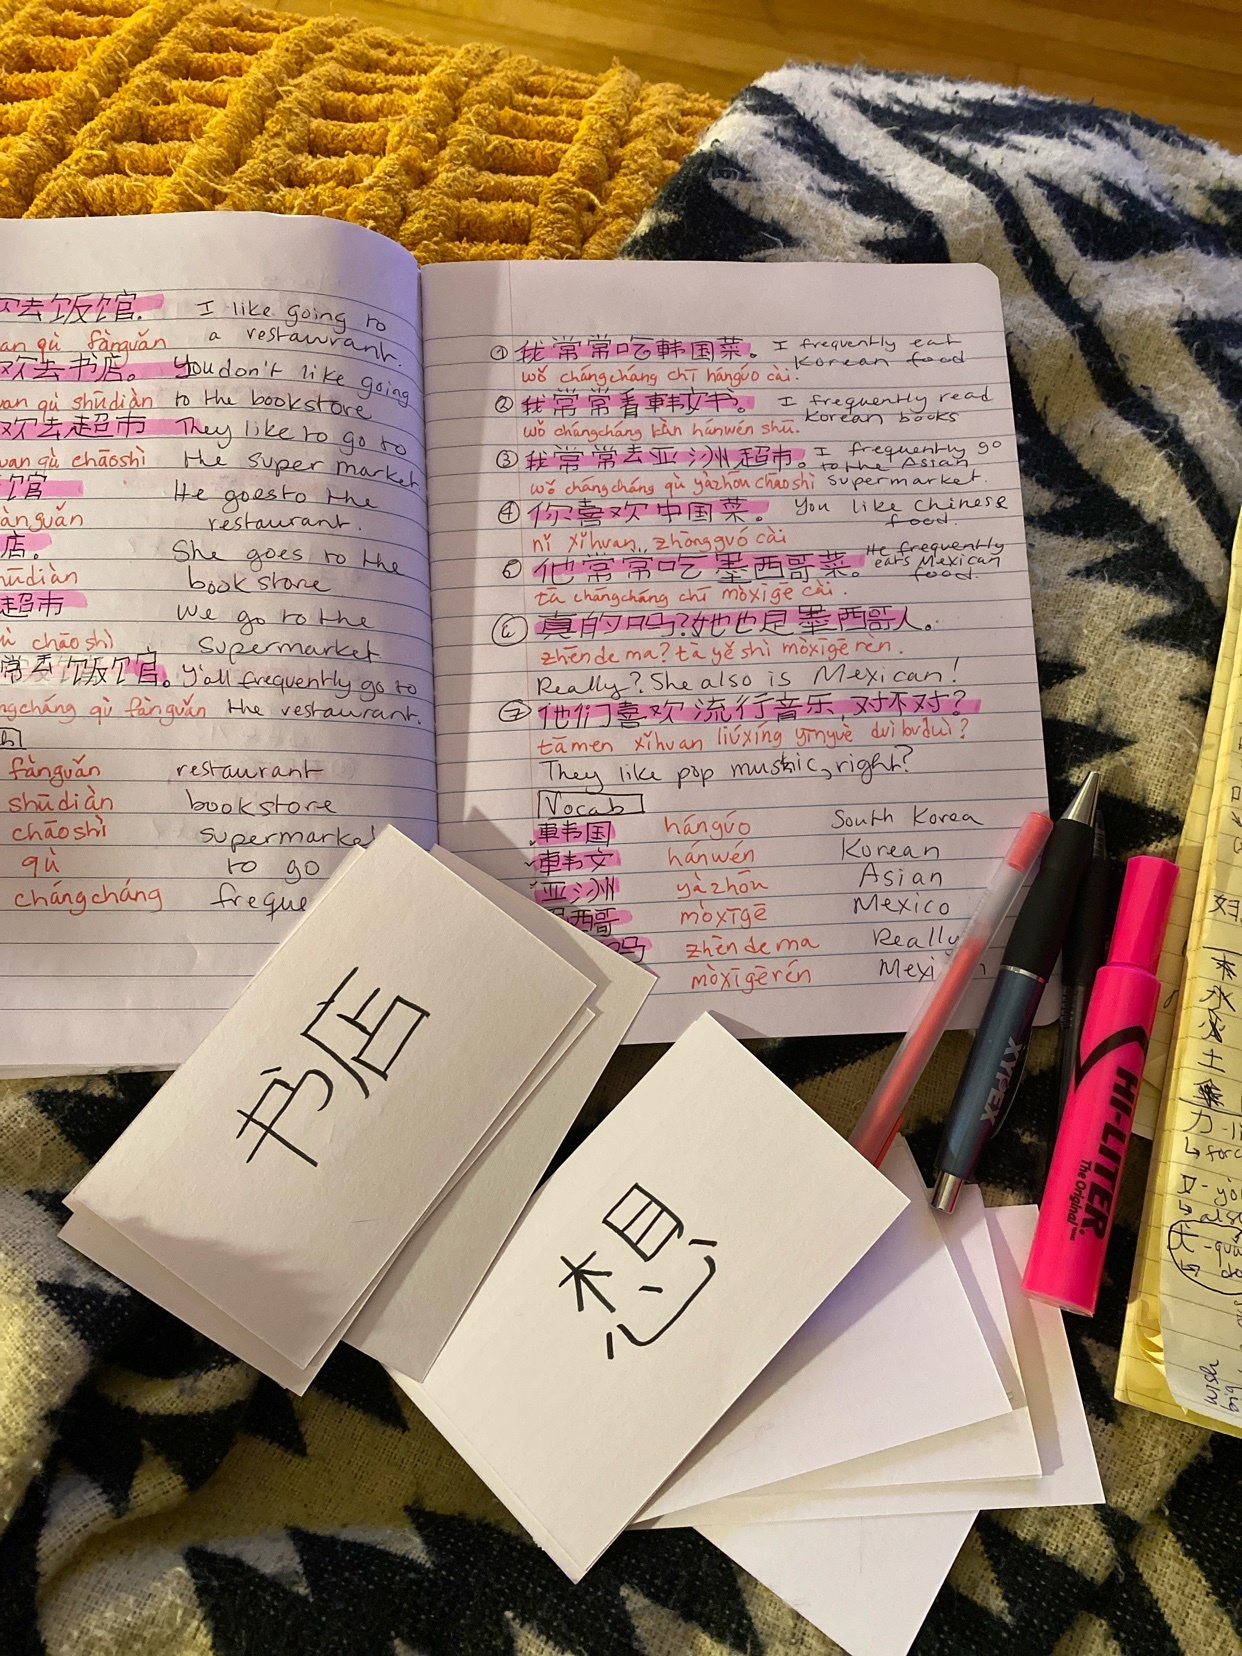 欢去饭馆。 I like going to
an qù fànguǎn a restaurant.
欢去书店。 You don't like going
an qù shūdiàn to the bookstore
欢去超市 They like to go to
uan qù chāoshì the super market
饭馆 He goes to the
ànguǎn restaurant.
店。 She goes to the
hūdiàn book store
超市 We go to the
ù chāoshì supermarket
常去饭馆。 Y'all frequently go to
ngcháng qù fànguǎn the restaurant.
fànguǎn restaurant
shūdiàn bookstore
chāoshì supermarket
qù to go
chángcháng freque
① 我常常吃韩国菜。 I frequently eat
Korean food
wǒ chángcháng chī hánguó cài.
② 我常常看韩文书。 I frequently read
Korean books
wǒ chángcháng kàn hánwén shū.
③ 我常常去亚洲超市。 I frequently go
to the Asian
wǒ chángcháng qù yàzhōu chāoshì supermarket.
④ 你喜欢中国菜。 You like Chinese
food.
nǐ xǐhuan zhōngguó cài
⑤ 他常常吃墨西哥菜。 He frequently
eats Mexican
food.
tā chángcháng chī mòxīgē cài.
⑥ 真的吗?她也是墨西哥人。
zhēn de ma? tā yě shì mòxīgē rén.
Really? She also is Mexican!
⑦ 他们喜欢流行音乐,对不对?
tāmen xǐhuan liúxíng yīnyuè duì bu duì?
They like pop music, right?
Vocab
韩国 hánguó South Korea
韩文 hánwén Korean
亚洲 yàzhōu Asian
西哥 mòxīgē Mexico
吗 zhēn de ma Really
mòxīgērén Mexi
书店
想
XYPEX
HI-LITER
The Original
木
水
土
力
forc
又
also
大
wish
big